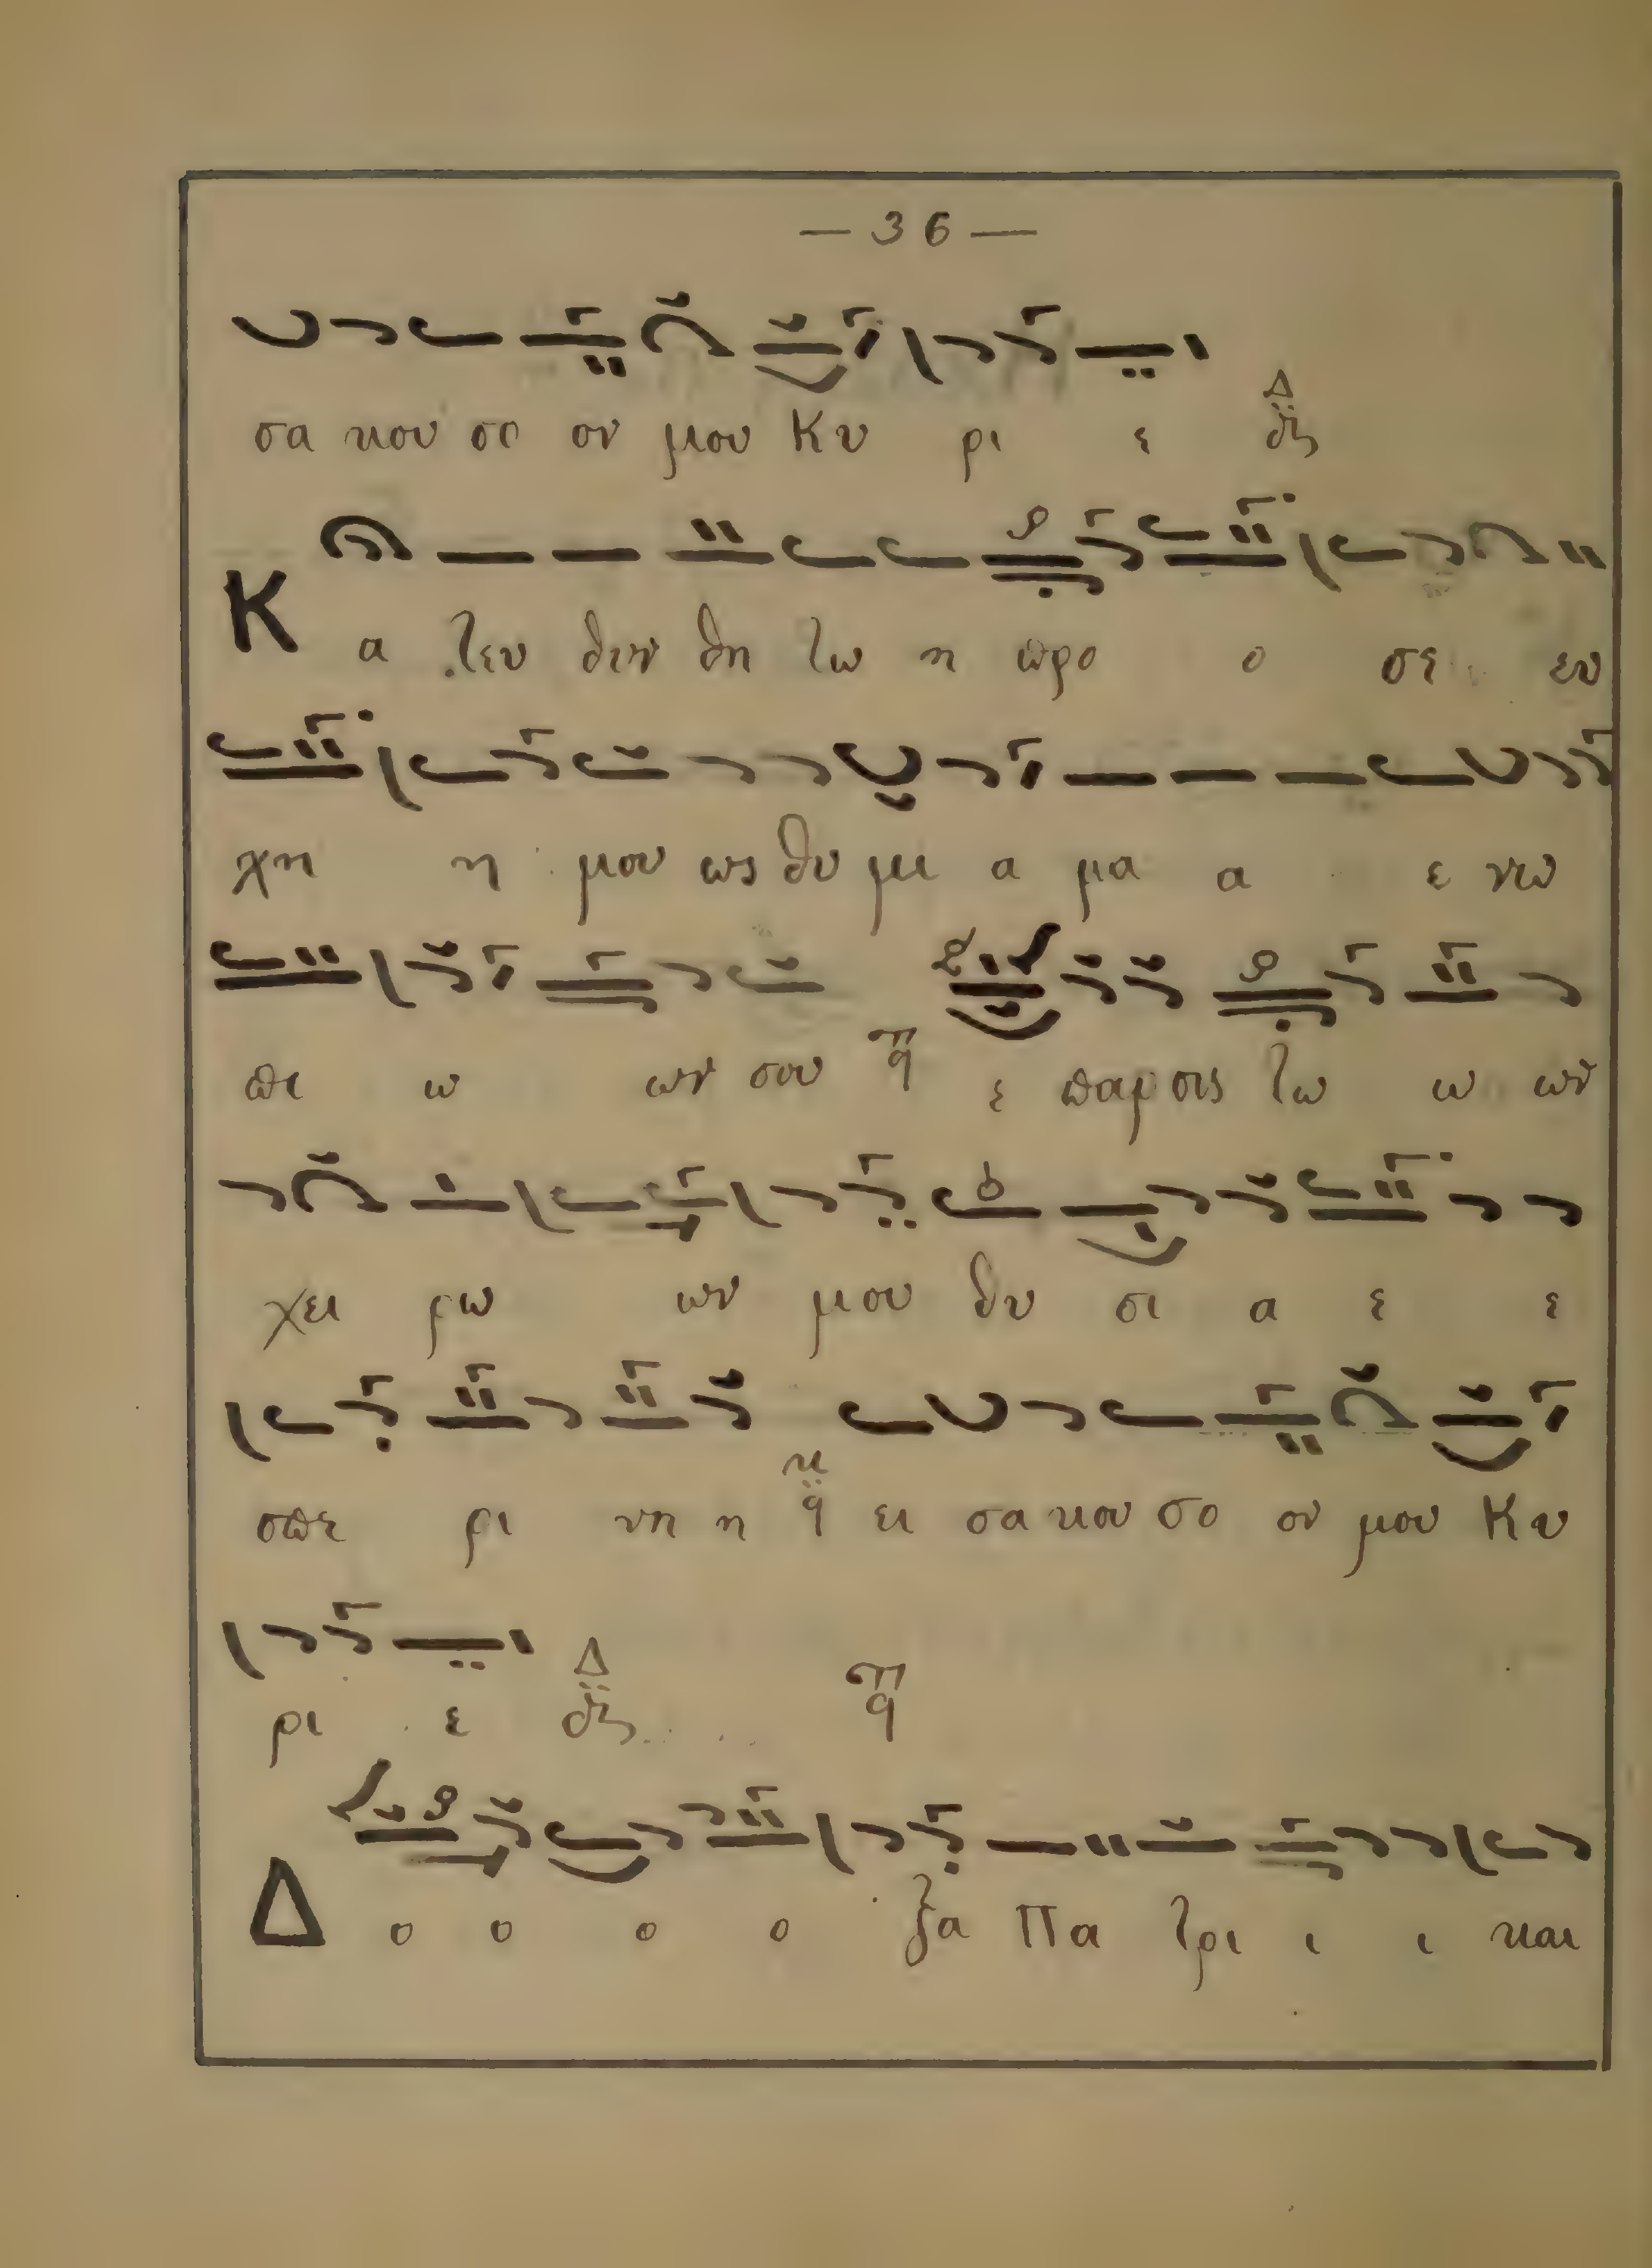 — 36 —
σα κου σο ον μου Κυ ρι ε Δ
Κ α τευ θυν θη τω η προ ο σε ευ
χη η μου ως θυ μι α μα α ε νω
πι ω ων σου π q ε παρ σις τω ω ων
χει ρω ων μου θυ σι α ε ε
σπε ρι νη η κ q ει σα κου σο ον μου Κυ
ρι ε Δ π q
Δ ο ο ο ο ξα Πα τρι ι ι και